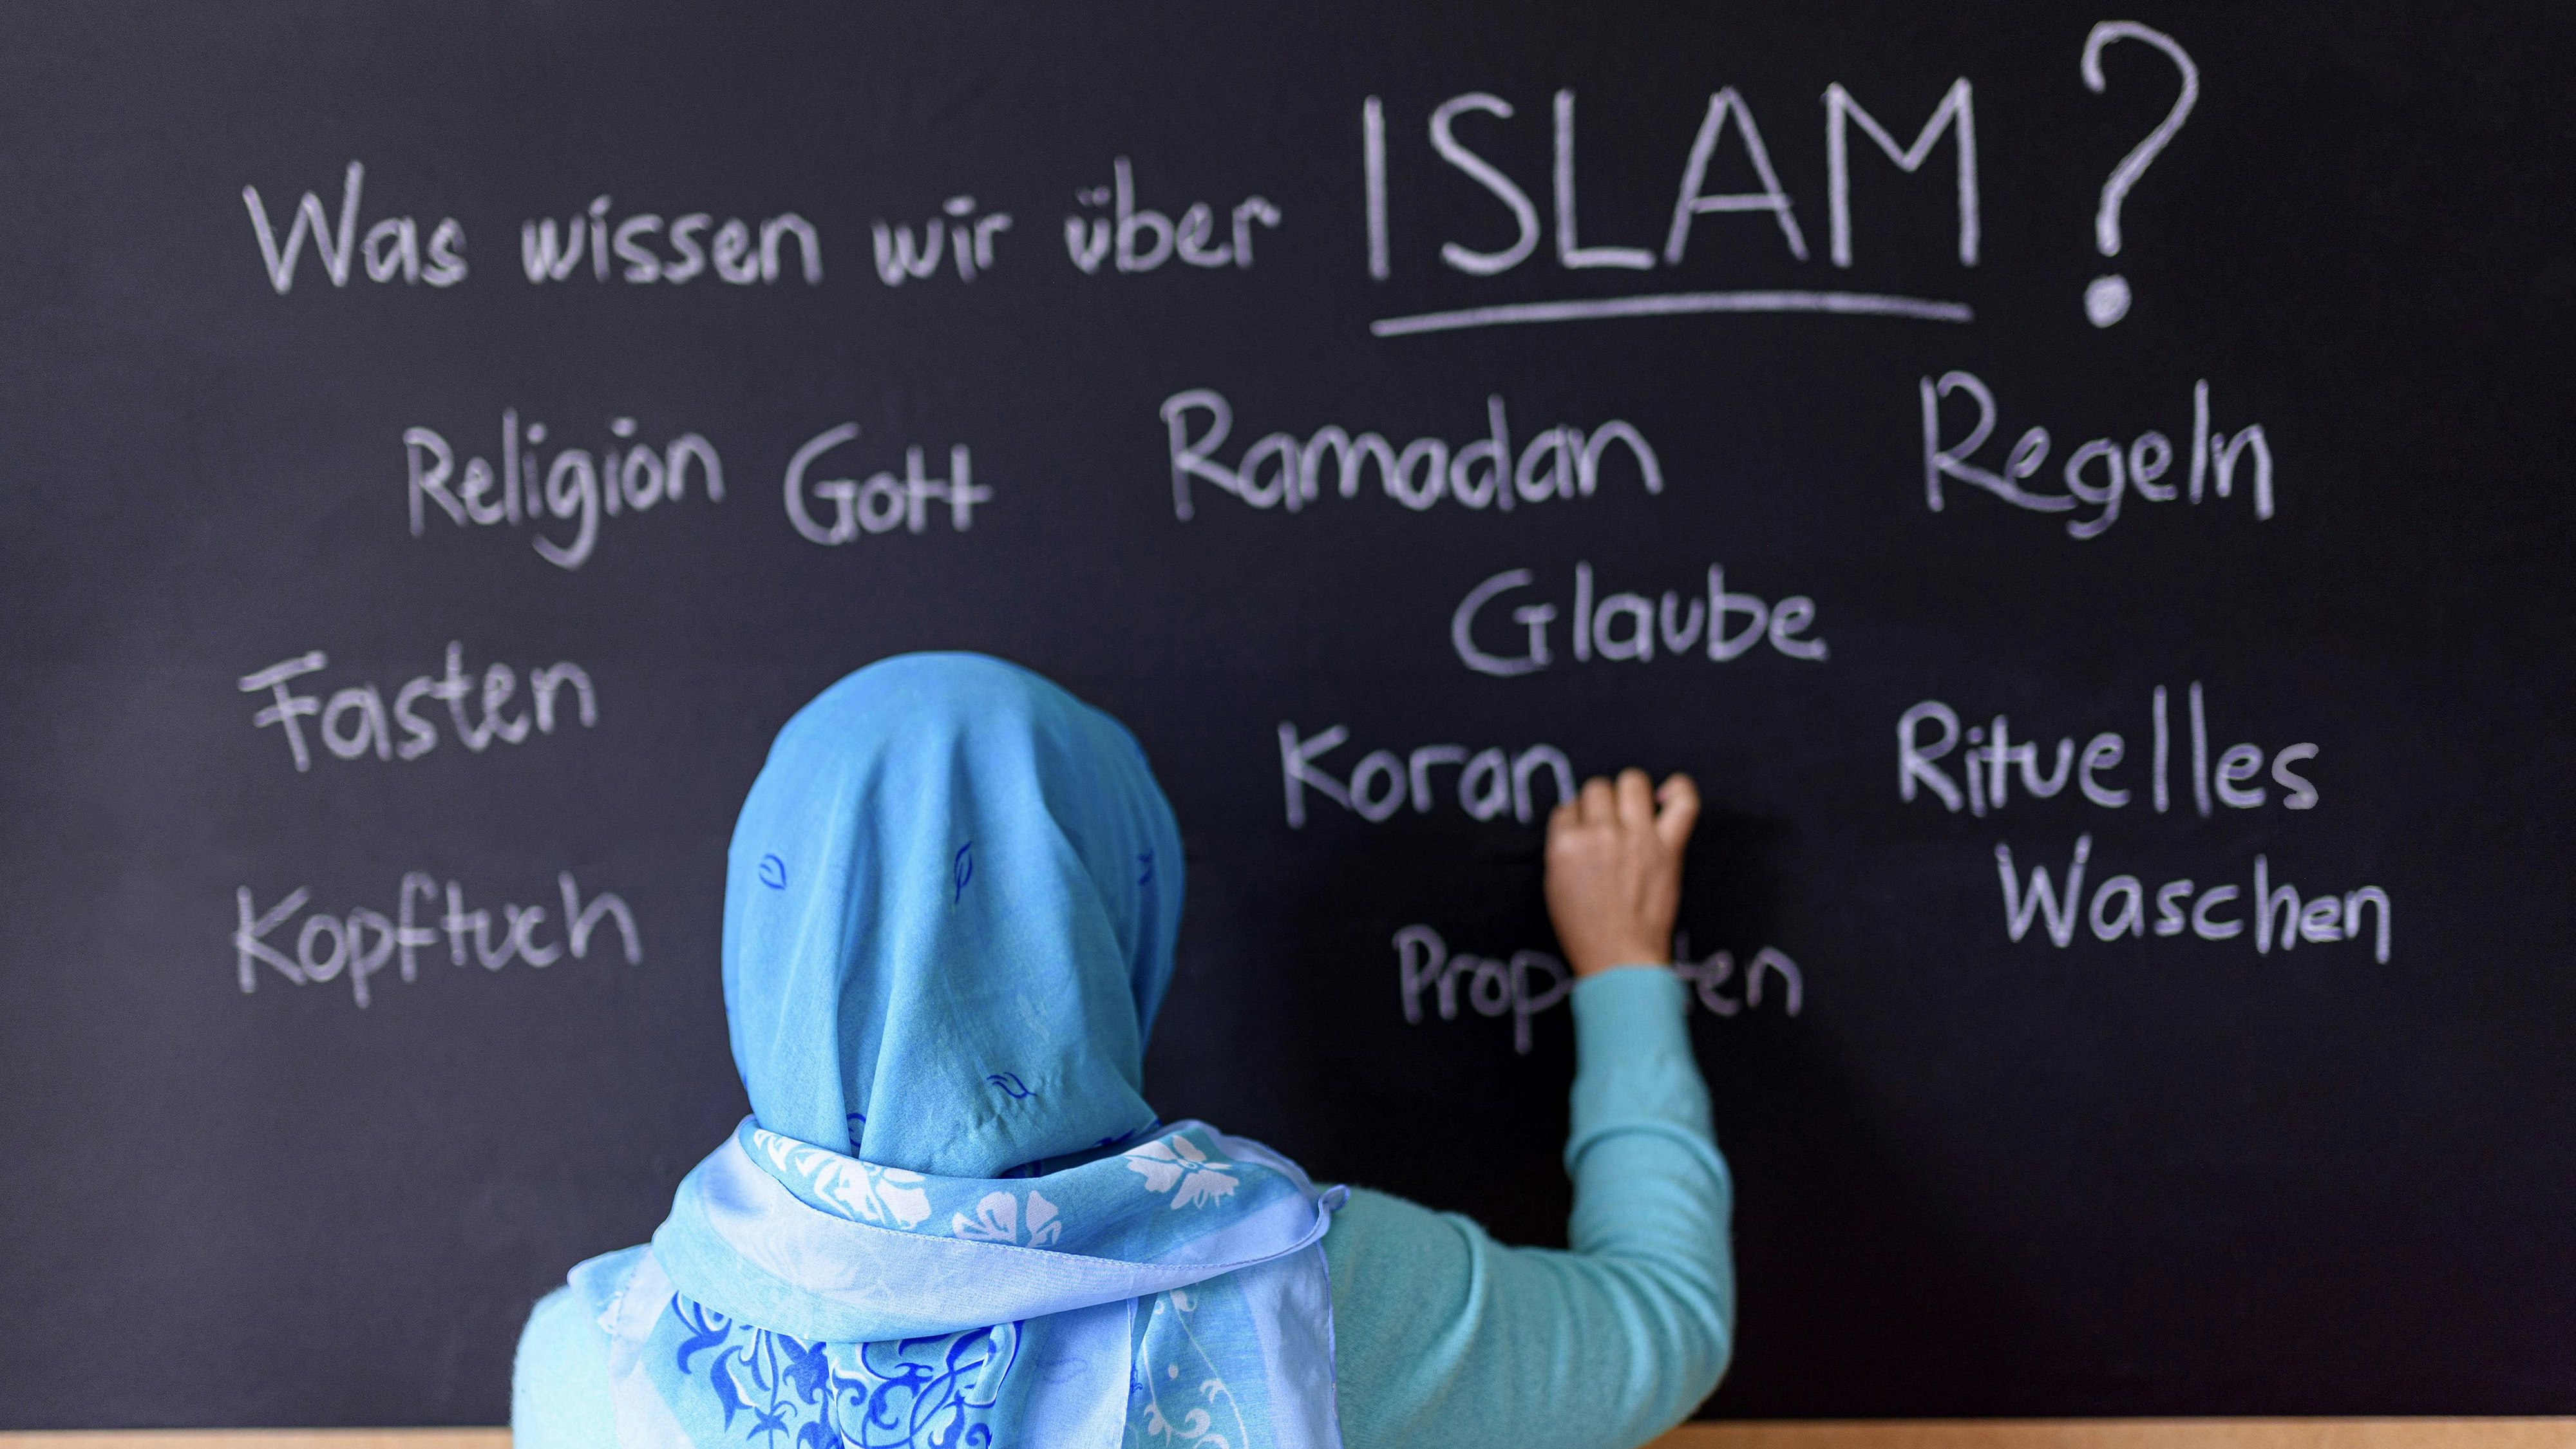 Was wissen wir über ISLAM?
Religion Gott Ramadan Regeln
Glaube
Fasten
Koran
Rituelles
Waschen
Kopftuch